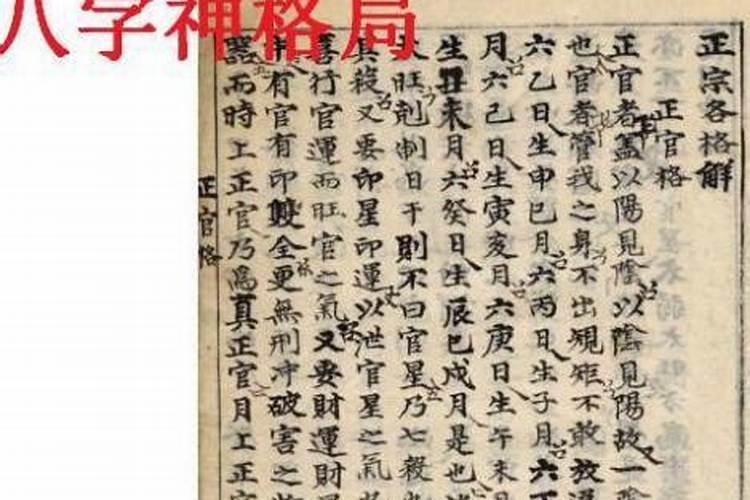 八字神格局
正宗各格解
正官格
正官者蓋以陽見陰以陰見陽故一
也官者管我之身不出規矩不敢放
六乙日生申巳月六丙日生子月六
月六己日生寅亥月六庚日生午未
生丑未月六癸日生辰巳戌月是也
旺剋制日干則不曰官星乃七殺
其殺又要印星印運以泄官星之氣
喜行官運而旺官之氣又要財運財
有官有印雙全更無刑冲破害之
器而時上正官乃爲真正官月上正
正官格